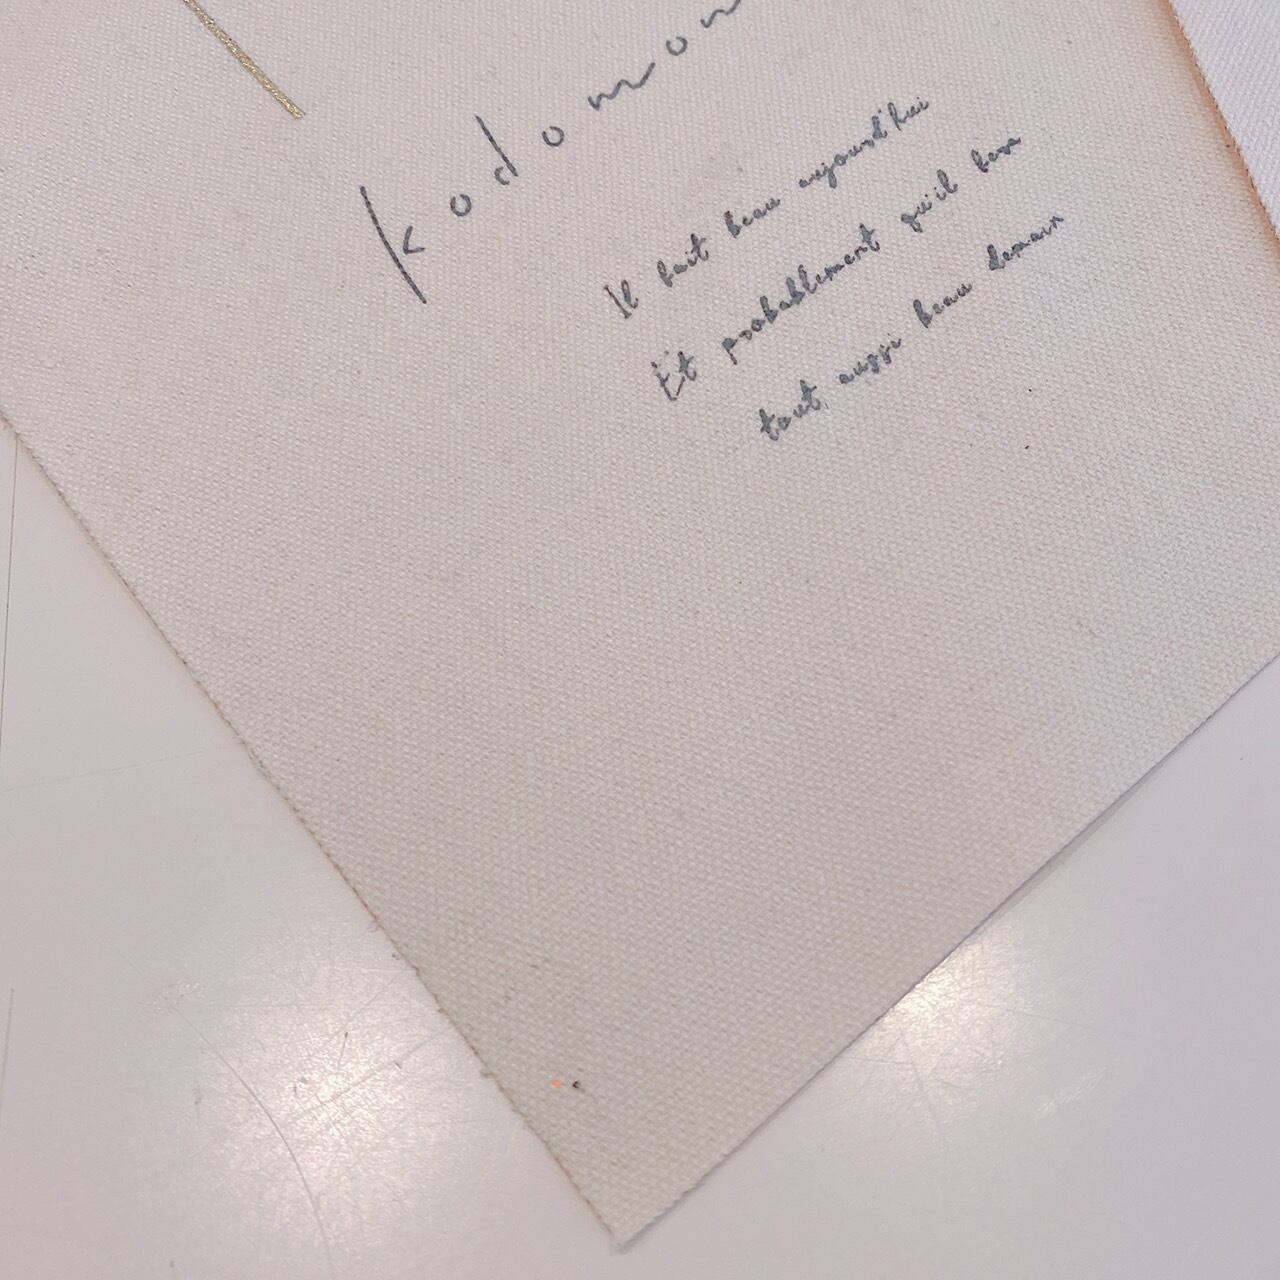 kodomo
Il fait beau aujourd'hui
Et probablement qu'il fera
tout aussi beau demain